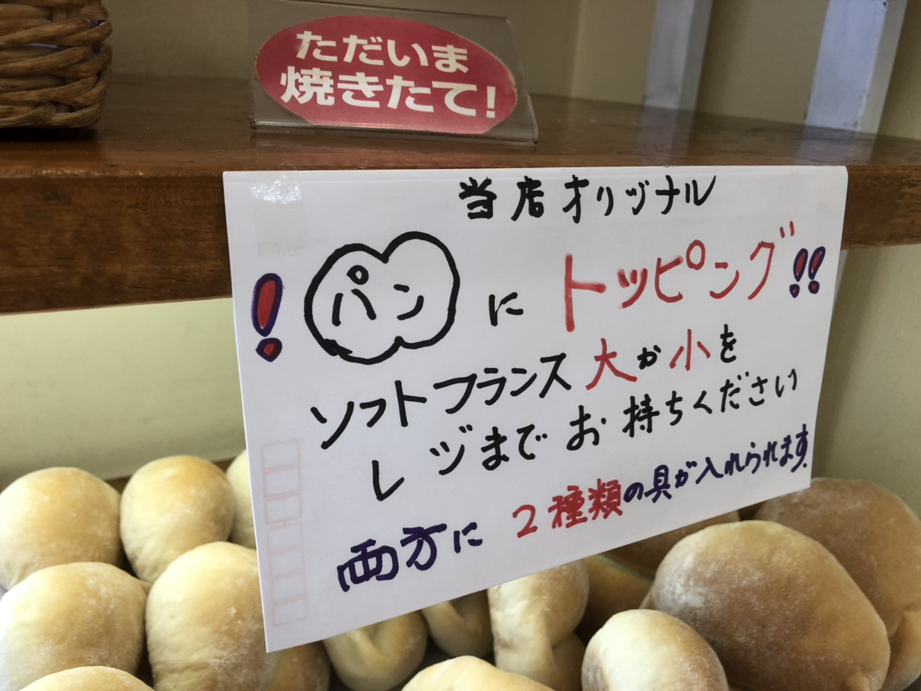 ただいま
焼きたて!
当店オリヅナル
!パンにトッピング!!
ソフトフランス大か小を
レヅまでお持ちください
両方に2種類の具が入れられます.